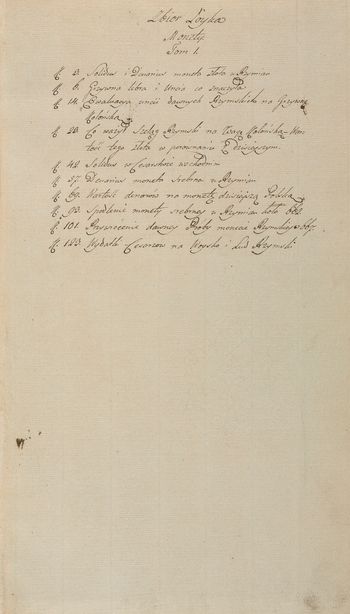 Zbior Łoyka
Monety
Tom 1.
K. 3. Solidus i Denarius moneta złota u Rzymian
K. 6. Grzywna libra i Uncia co znaczyła
K. 14. Ewaluacya uncii dawnych Rzymskich na Grzywnę
Kolońską
K. 20. Co ważył Szeląg Rzymski na Wagę Kolońską War
tość tego złota w porownaniu z dzisieyszym.
K. 42. Solidus w Cesarstwie wschodnim
K. 57. Denarius moneta srebrna u Rzymian
K. 69. Wartość denarów na monetę dzisieyszą Polską
K. 93. Spodlenie monety srebrney u Rzymian koło
K. 101 Przywrócenie dawney Proby monecie Rzymskiey
K. 123 Wydatki Cesarzow na Woysko i lud Rzymski